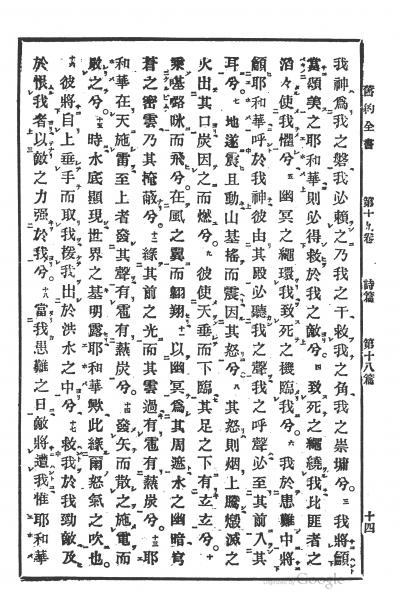 舊約全書 第十九卷 詩篇 第十八篇 十四
我神爲我之磐我必賴之乃我之干救我之角我之崇墉兮。三 我將龥
當頌美之耶和華則必得救於我之敵兮。四 致死之繩繞我比匪者之
滔々使我懼兮。五 幽冥之繩環我致死之機臨我兮。六 我於患難中將
龥耶和華呼於我神彼由其殿必聽我之聲我之呼聲必至其前入其
耳兮。七 地遂震且動山基搖而震因其怒兮。八 其怒則烟上騰燬滅之
火出其口炭因之而燃兮。九 彼使天垂而下臨其足之下有玄玄兮。十
乘基路咏而飛兮。在風之翼而翺翔。十一 以幽冥爲其周遮水之幽暗穹
蒼之密雲乃其掩蔽兮。十二 緣其前之光而其雲過有雹有熱炭兮。十三 耶
和華在天施雷至上者發其聲有雹有熱炭兮。十四 發矢而散之施電而
敗之兮。十五 時水底顯現世界之基明露耶和華歟此緣爾怒氣之吹也。
十六 彼將自上垂手而取我援我出於洪水之中兮。十七 救我於我勁敵及
於恨我者以敵之力强於我兮。十八 當我患難之日敵將遭我惟耶和華
Digitized by Google